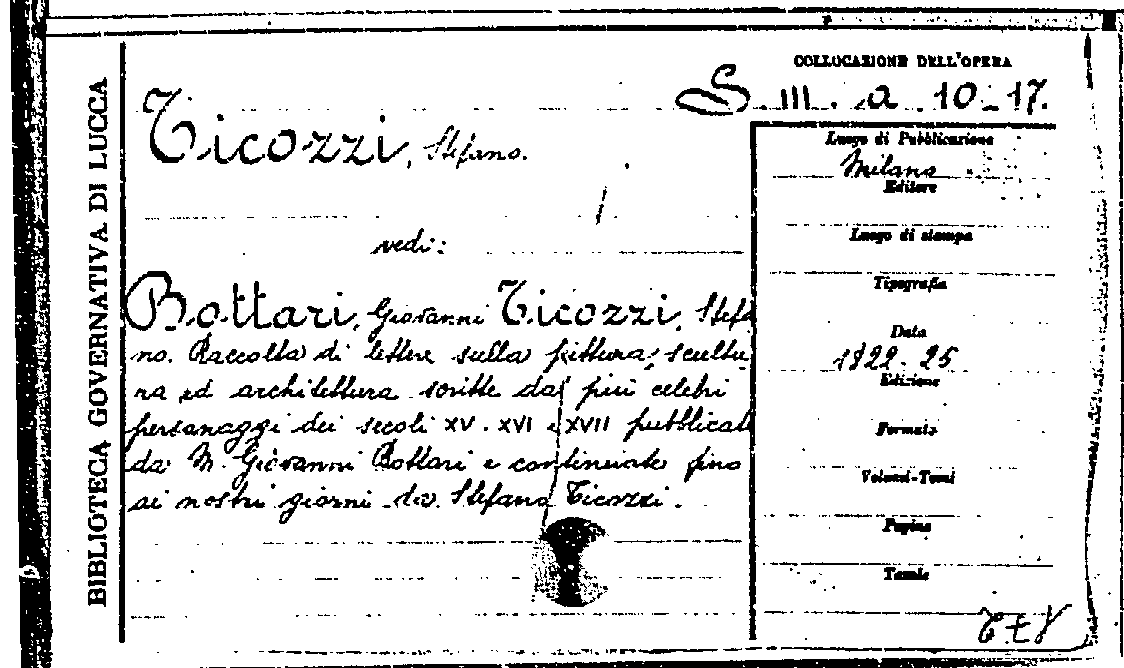 BIBLIOTECA GOVERNATIVA DI LUCCA
COLLOCAZIONE DELL'OPERA
S. III. a 10-17.
Ticozzi, Stefano.
vedi:
Bottari, Giovanni Ticozzi, Stefa
no. Raccolta di lettere sulla pittura, scultu
ra ed architettura scritte dai più celebri
personaggi dei secoli XV. XVI e XVII pubblicate
da M. Giovanni Bottari e continuate fino
ai nostri giorni da Stefano Ticozzi.
Luogo di Pubblicazione
Milano
Editore
Luogo di stampa
Tipografia
Data
1822-25
Edizione
Formato
Volumi-Tomi
Pagine
Tavole